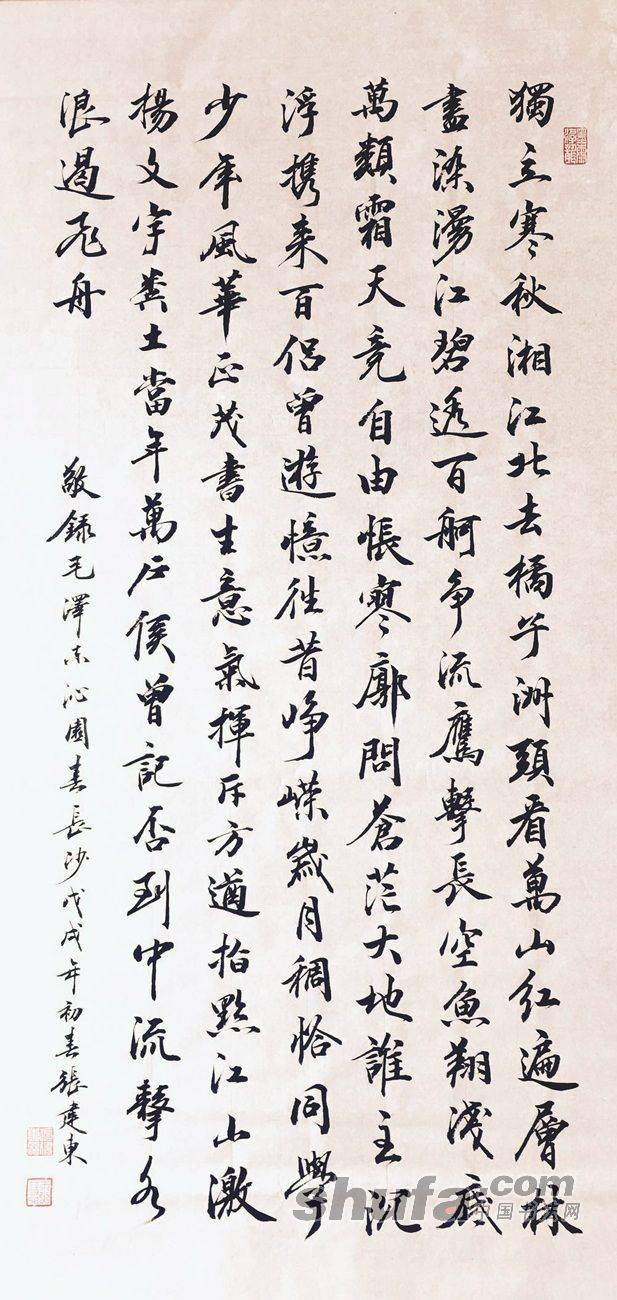 獨立寒秋湘江北去橘子洲頭看萬山紅遍層林
盡染漫江碧透百舸争流鷹擊長空魚翔淺底
萬類霜天竞自由悵寥廓問蒼茫大地誰主沉
浮携来百侣曾遊憶往昔崢嶸歲月稠恰同學
少年風華正茂書生意氣揮斥方遒指點江山激
揚文字糞土當年萬户侯曾記否到中流擊水
浪遏飛舟
敬録毛澤東沁園春長沙戊戌年初春張建東
shufa.com
中国书法网